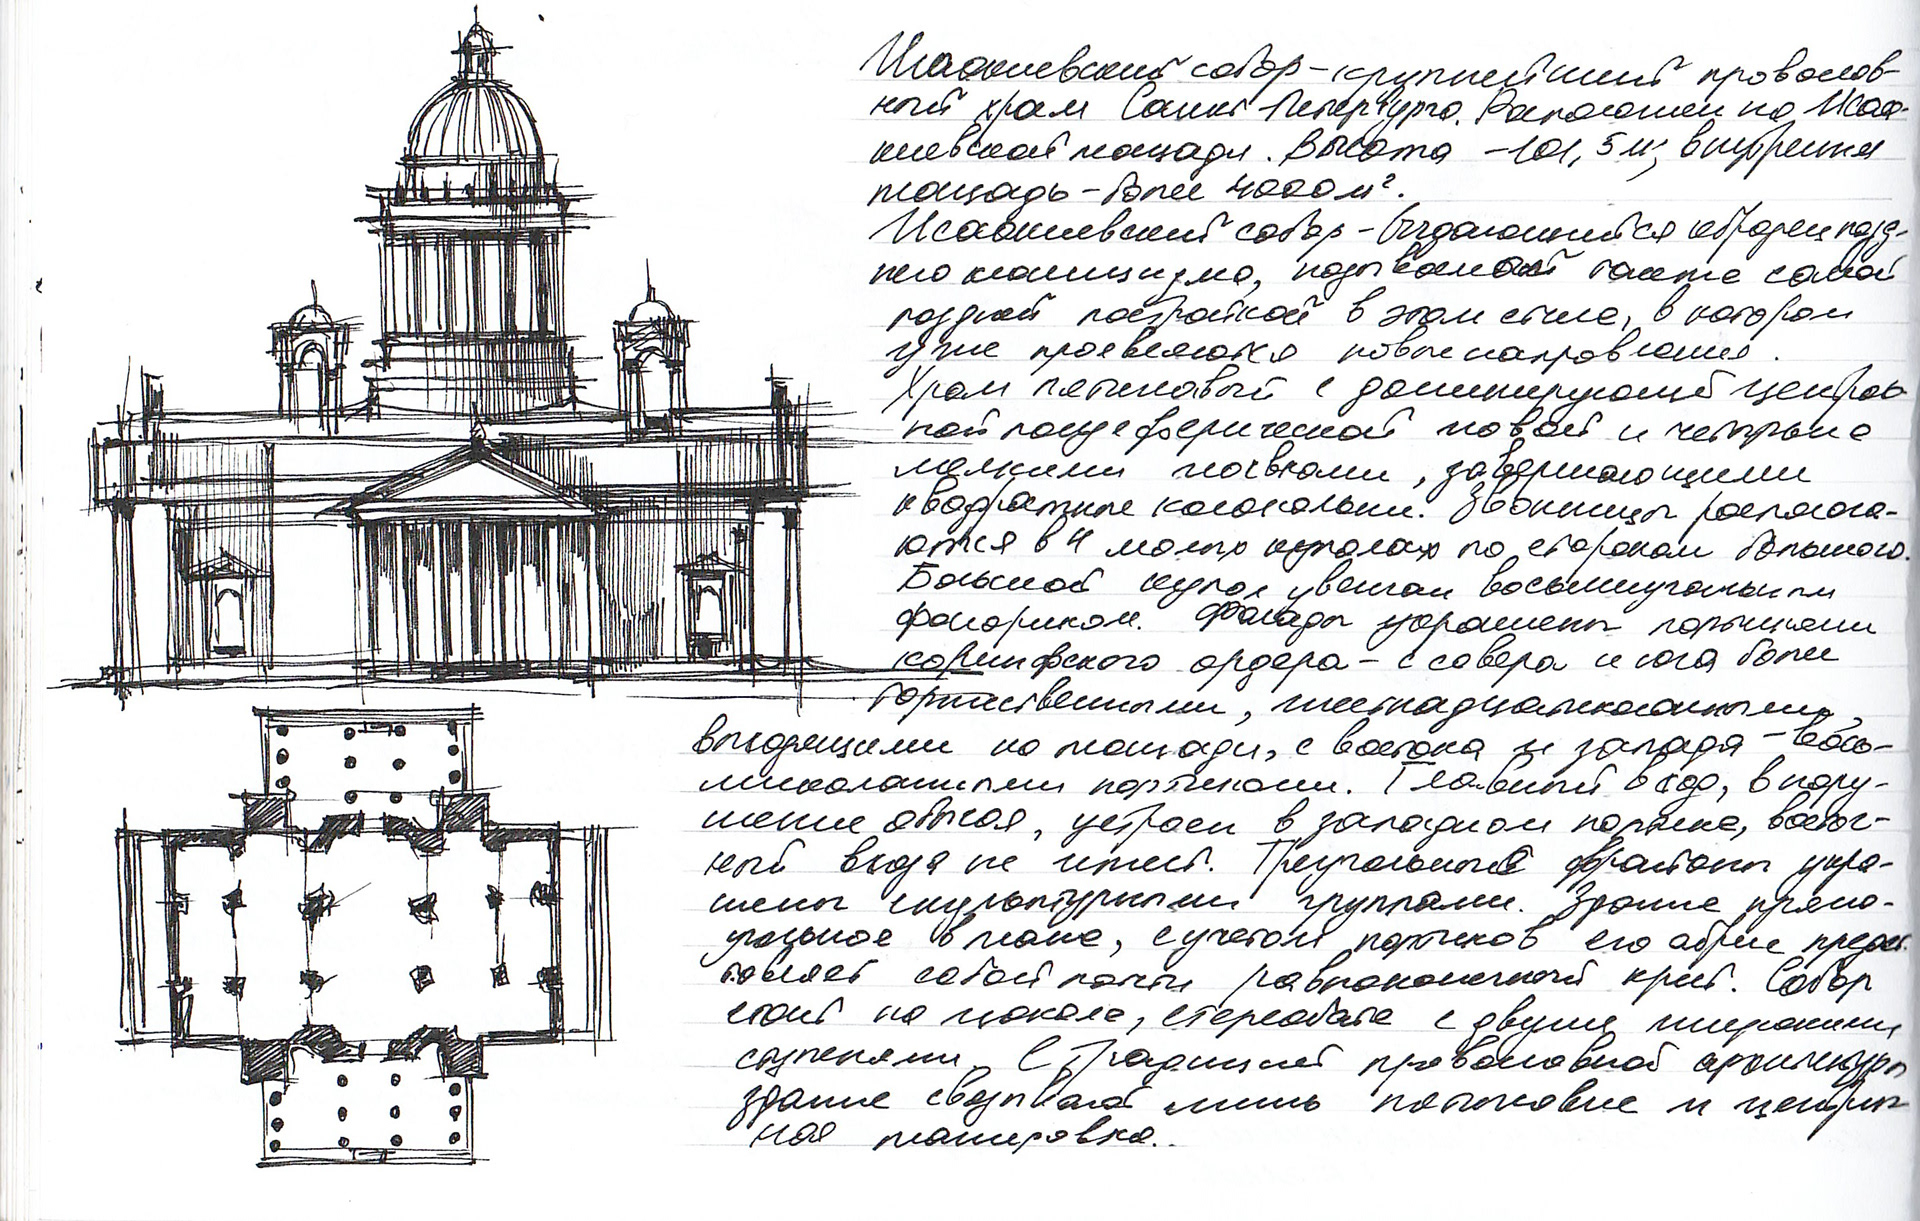 Исаакиевский собор – крупнейший православ-
ный храм Санкт-Петербурга. Расположен на Исаа-
киевской площади. Высота – 101,5 м, внутренняя
площадь – более 4000 м².
Исаакиевский собор – выдающийся образец позд-
него классицизма, называемый также самой
поздней постройкой в этом стиле, в котором
уже проявляются новые направления.
Храм пятиглавый с доминирующей централь
ной полусферической главой и четырьмя
мелкими главками, завершающими
квадратные колокольни. Звонницы распола-
ются в 4 малых куполах по сторонам большого.
Большой купол увенчан восьмиугольным
фонариком. Фасады украшены портиками
коринфского ордера – с севера и юга более
торжественными, шестнадцатиколонными,
выходящими на площади, с востока и запада – вось-
миколонными портиками. Главный вход, в нару-
шение обычая, устроен в западном портике, восточ-
ный входа не имеет. Треугольные фронтоны укра-
шены скульптурными группами. Здание прямо-
угольное в плане, с учётом портиков его абрис предс
тавляет собой почти равноконечный крест. Собор
стоит на цоколе, стереобате с двумя широкими
ступенями. С традицией православной архитектуры
здание связывает лишь пятиглавие и центрич
ная планировка.